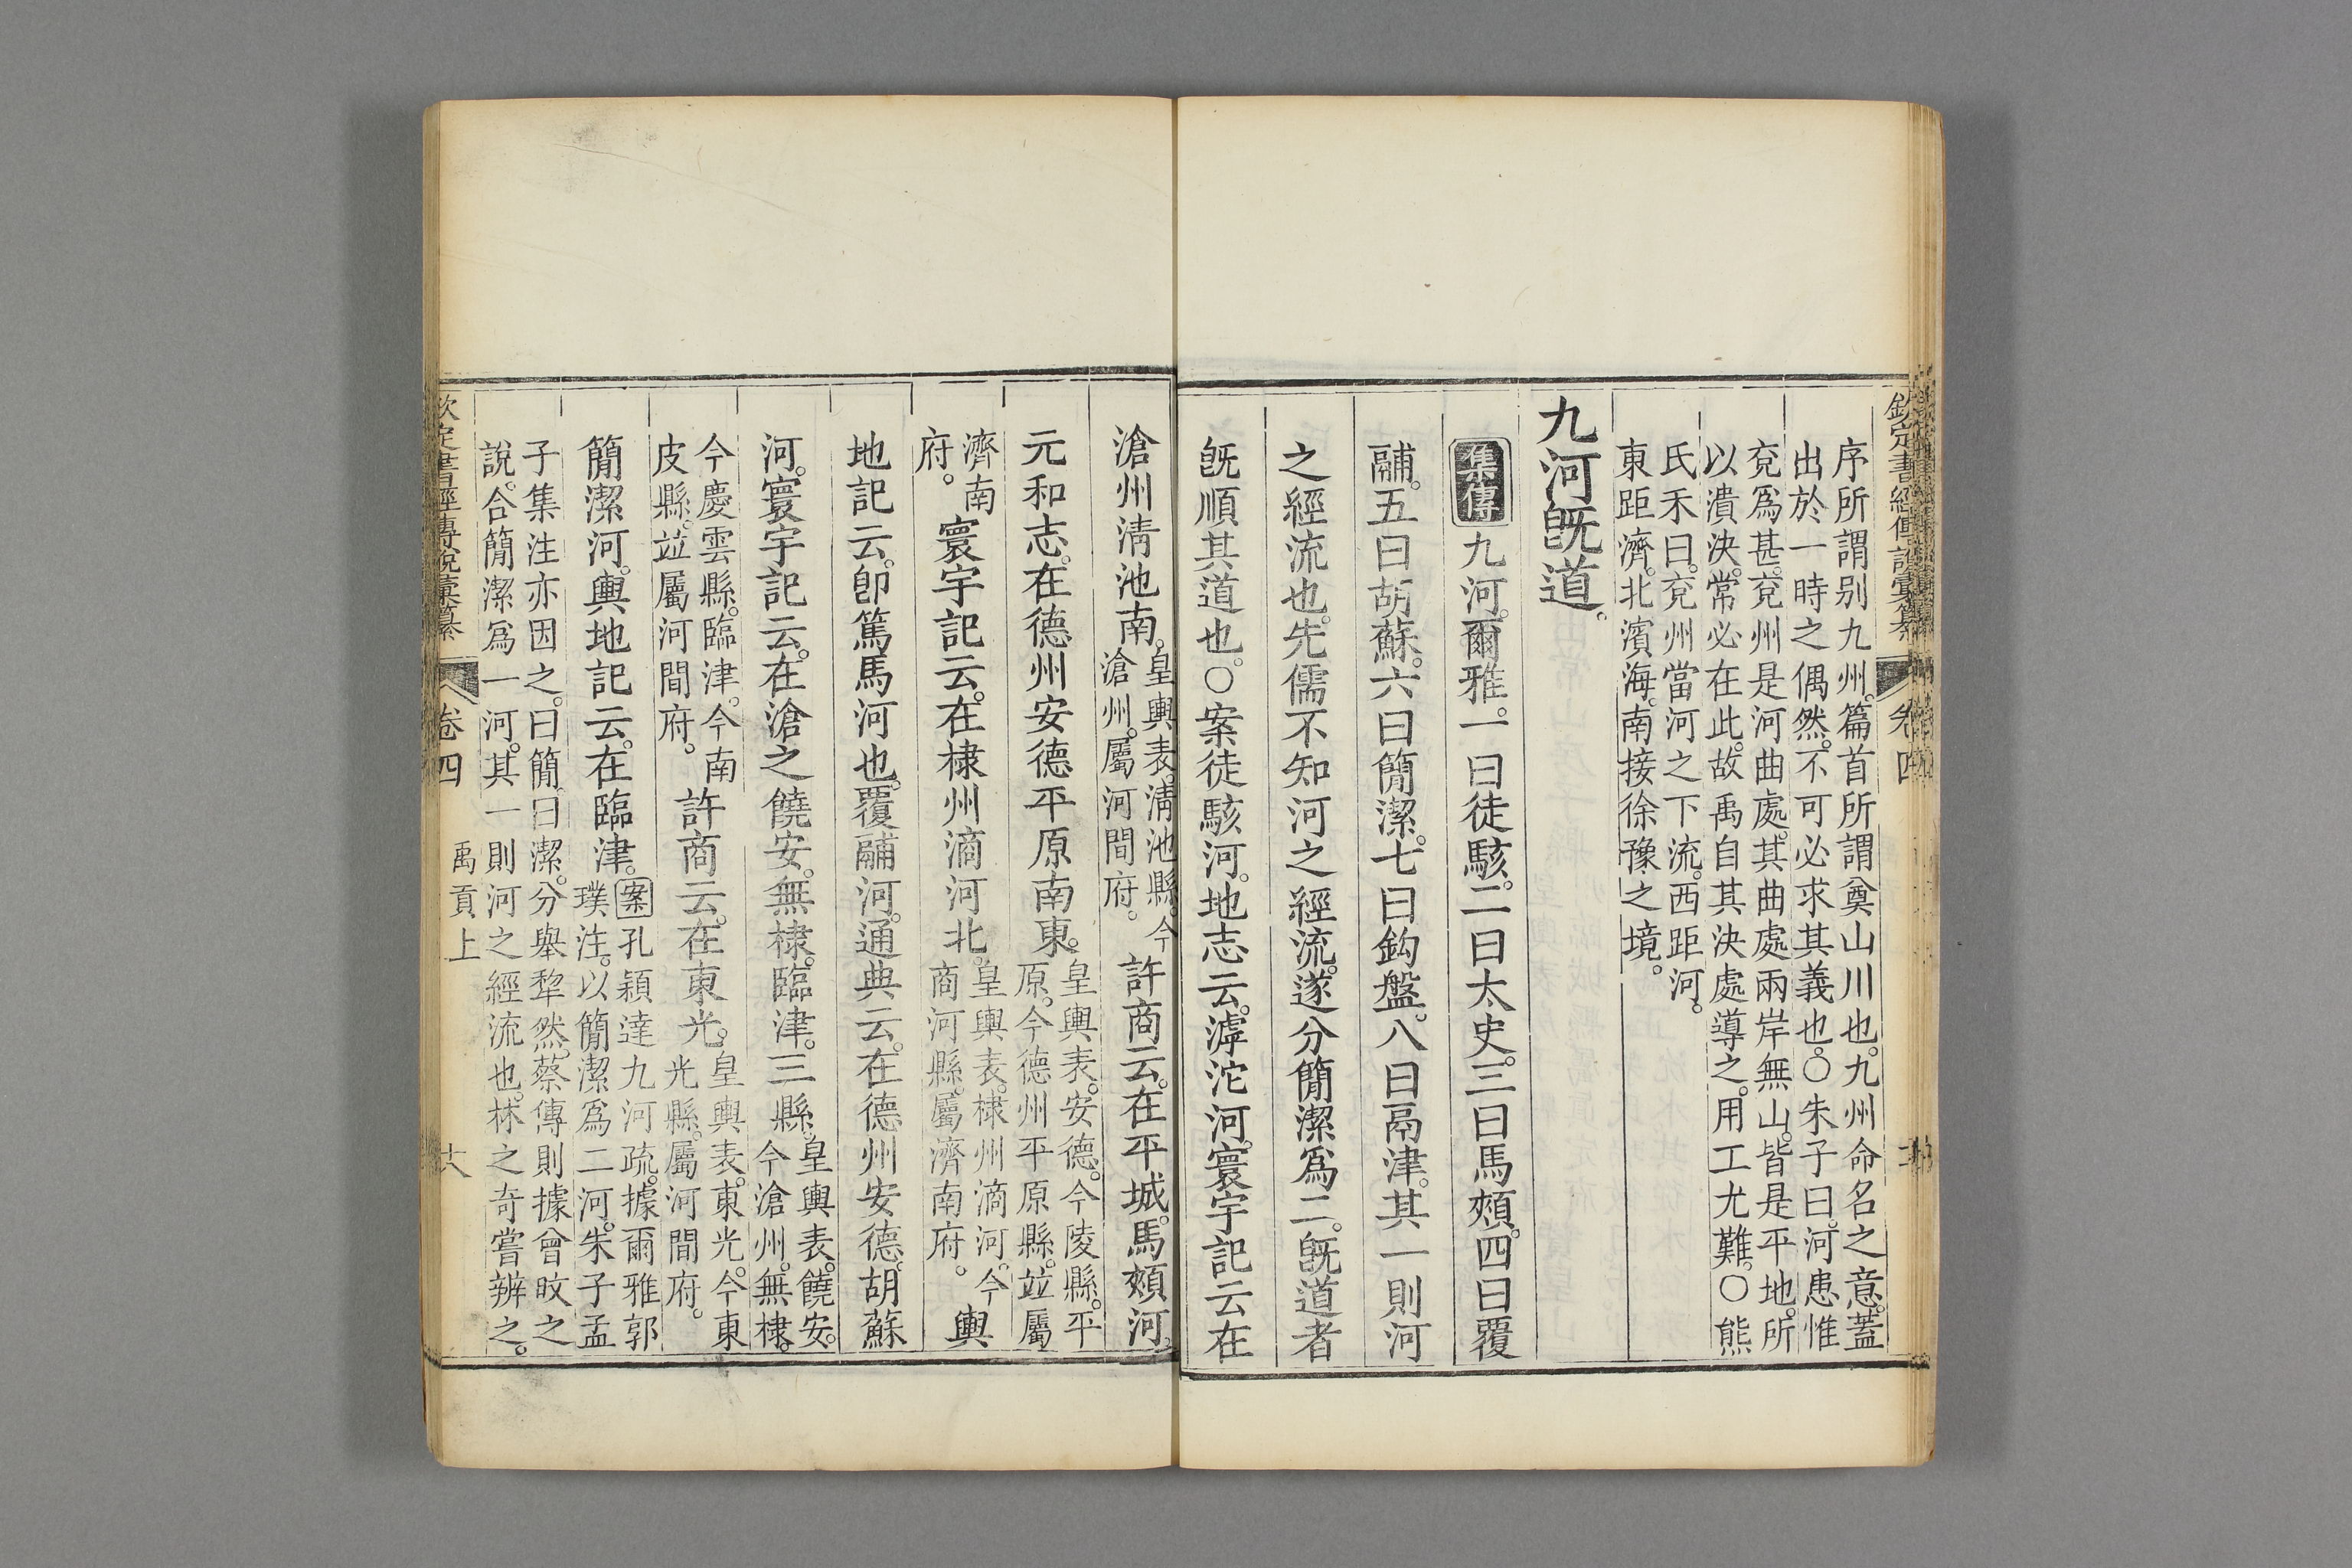 欽定書經傳說彙纂 卷四
序所謂别九州。篇首所謂奠山川也。九州命名之意。蓋
出於一時之偶然。不可必求其義也。○朱子曰。河患惟
兗爲甚。兗州是河曲處。其曲處兩岸無山。皆是平地。所
以潰決。常必在此。故禹自其決處導之。用工尤難。○熊
氏禾曰。兗州當河之下流。西距河。
東距濟。北濱海。南接徐豫之境。
九河旣道。
集傳 九河。爾雅。一曰徒駭。二曰太史。三曰馬頰。四曰覆
鬴。五曰胡蘇。六曰簡潔。七曰鈎盤。八曰鬲津。其一則河
之經流也。先儒不知河之經流。遂分簡潔爲二。旣道者
旣順其道也。○案徒駭河。地志云。滹沱河。寰宇記云在
滄州清池南。皇輿表。清池縣。今
滄州。屬河間府。
許商云。在平城。馬頰河。
元和志。在德州安德平原南東。皇輿表。安德。今陵縣。平
原。今德州平原縣。竝屬
濟南
府。
寰宇記云。在棣州滴河北。皇輿表。棣州滴河。今
商河縣。屬濟南府。
輿
地記云。卽篤馬河也。覆鬴河。通典云。在德州安德。胡蘇
河。寰宇記云。在滄之饒安。無棣。臨津。三縣。皇輿表。饒安。
今滄州。無棣。
今慶雲縣。臨津。今南
皮縣。竝屬河間府。
許商云。在東光。皇輿表。東光。今東
光縣。屬河間府。
簡潔河。輿地記云。在臨津。案孔穎達九河疏。據爾雅郭
璞注。以簡潔爲二河。朱子孟
子集注亦因之。曰簡。曰潔。分舉犂然。蔡傳則據曾旼之
說。合簡潔爲一河。其一則河之經流也。林之奇嘗辨之。
欽定書經傳說彙纂 卷四 禹貢上 十八